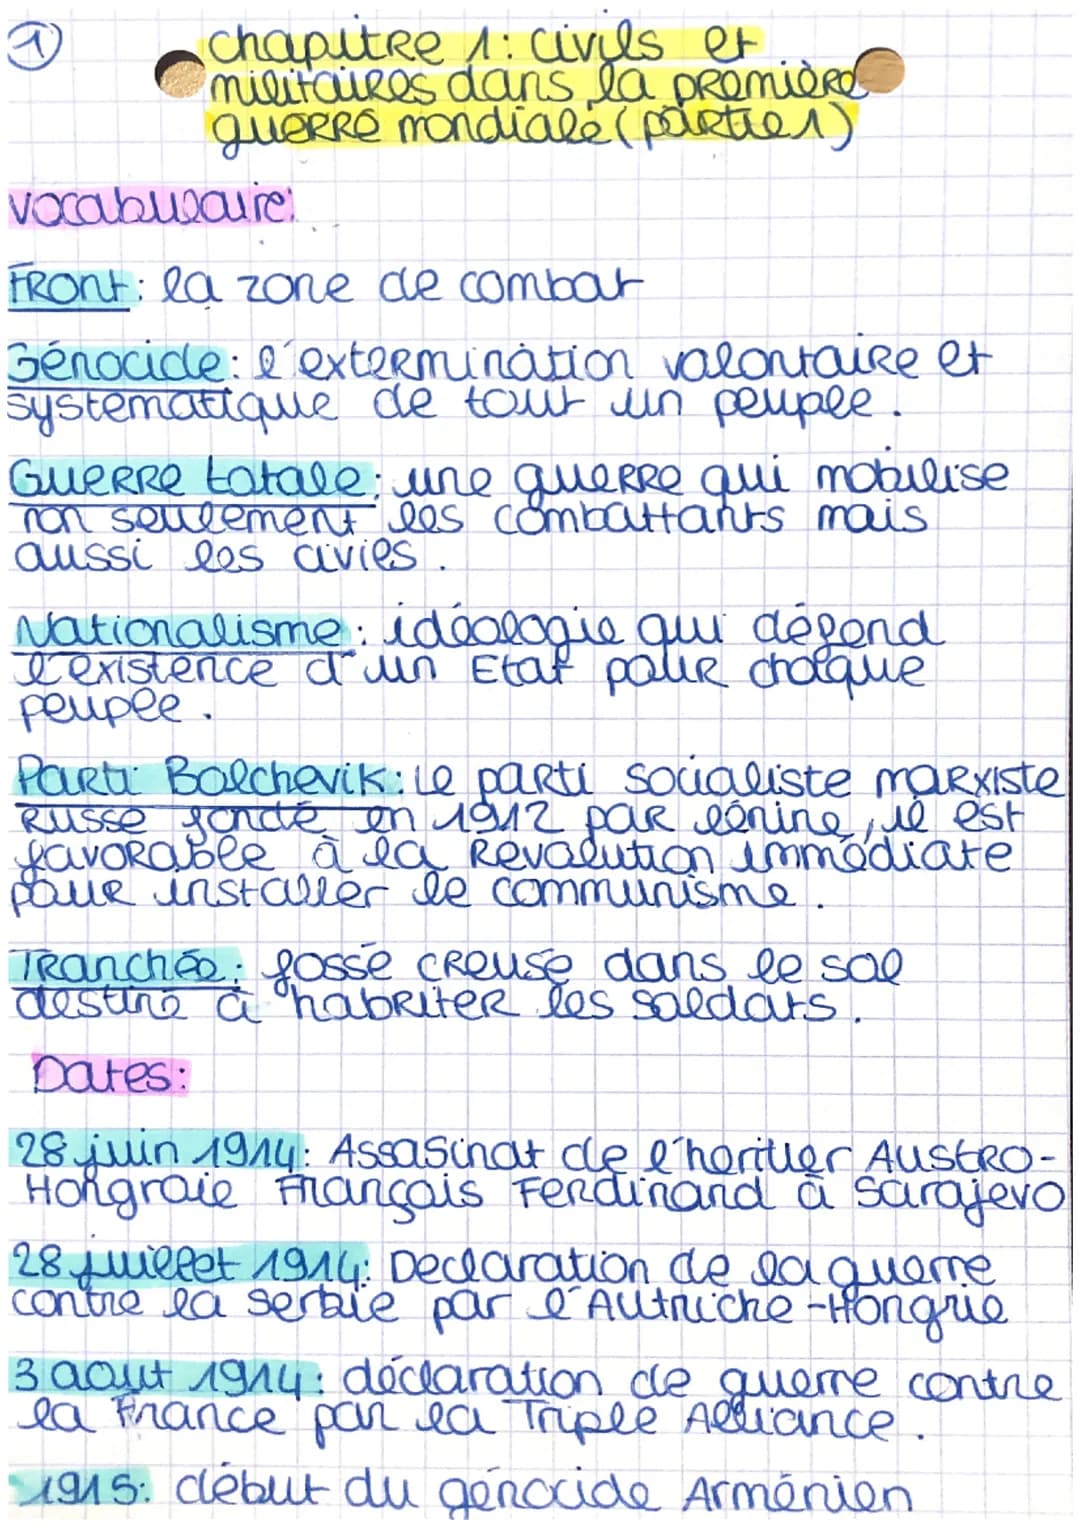 1
chapitre 1: civils et
militaires dans la première
guerre mondiale (partie 1)
vocabulaire:
Front: la zone de combat
Génocide: l'extermination volontaire et
systematique de tout un peuple.
Guerre totale: une guerre qui mobilise
non seulement les combattants mais
aussi les civils.
Nationalisme: idéologie qui défend
l'existence d'un Etat pour chaque
peuple.
Parti Bolchevik: le parti socialiste marxiste
Russe fondé en 1912 par lénine, il est
favorable à la Révolution immédiate
pour installer le communisme.
Tranchée: fosse creuse dans le sol
destiné à habriter les soldats.
Dates:
28 juin 1914: Assasinat de l'héritier Austro-
Hongraie Français Ferdinand à Sarajevo
28 juillet 1914: Declaration de la guerre
contre la serbie par l'Autriche-Hongrie
3 aout 1914: déclaration de guerre contre
la France par la Triple Alliance.
1915: début du génocide Arménien